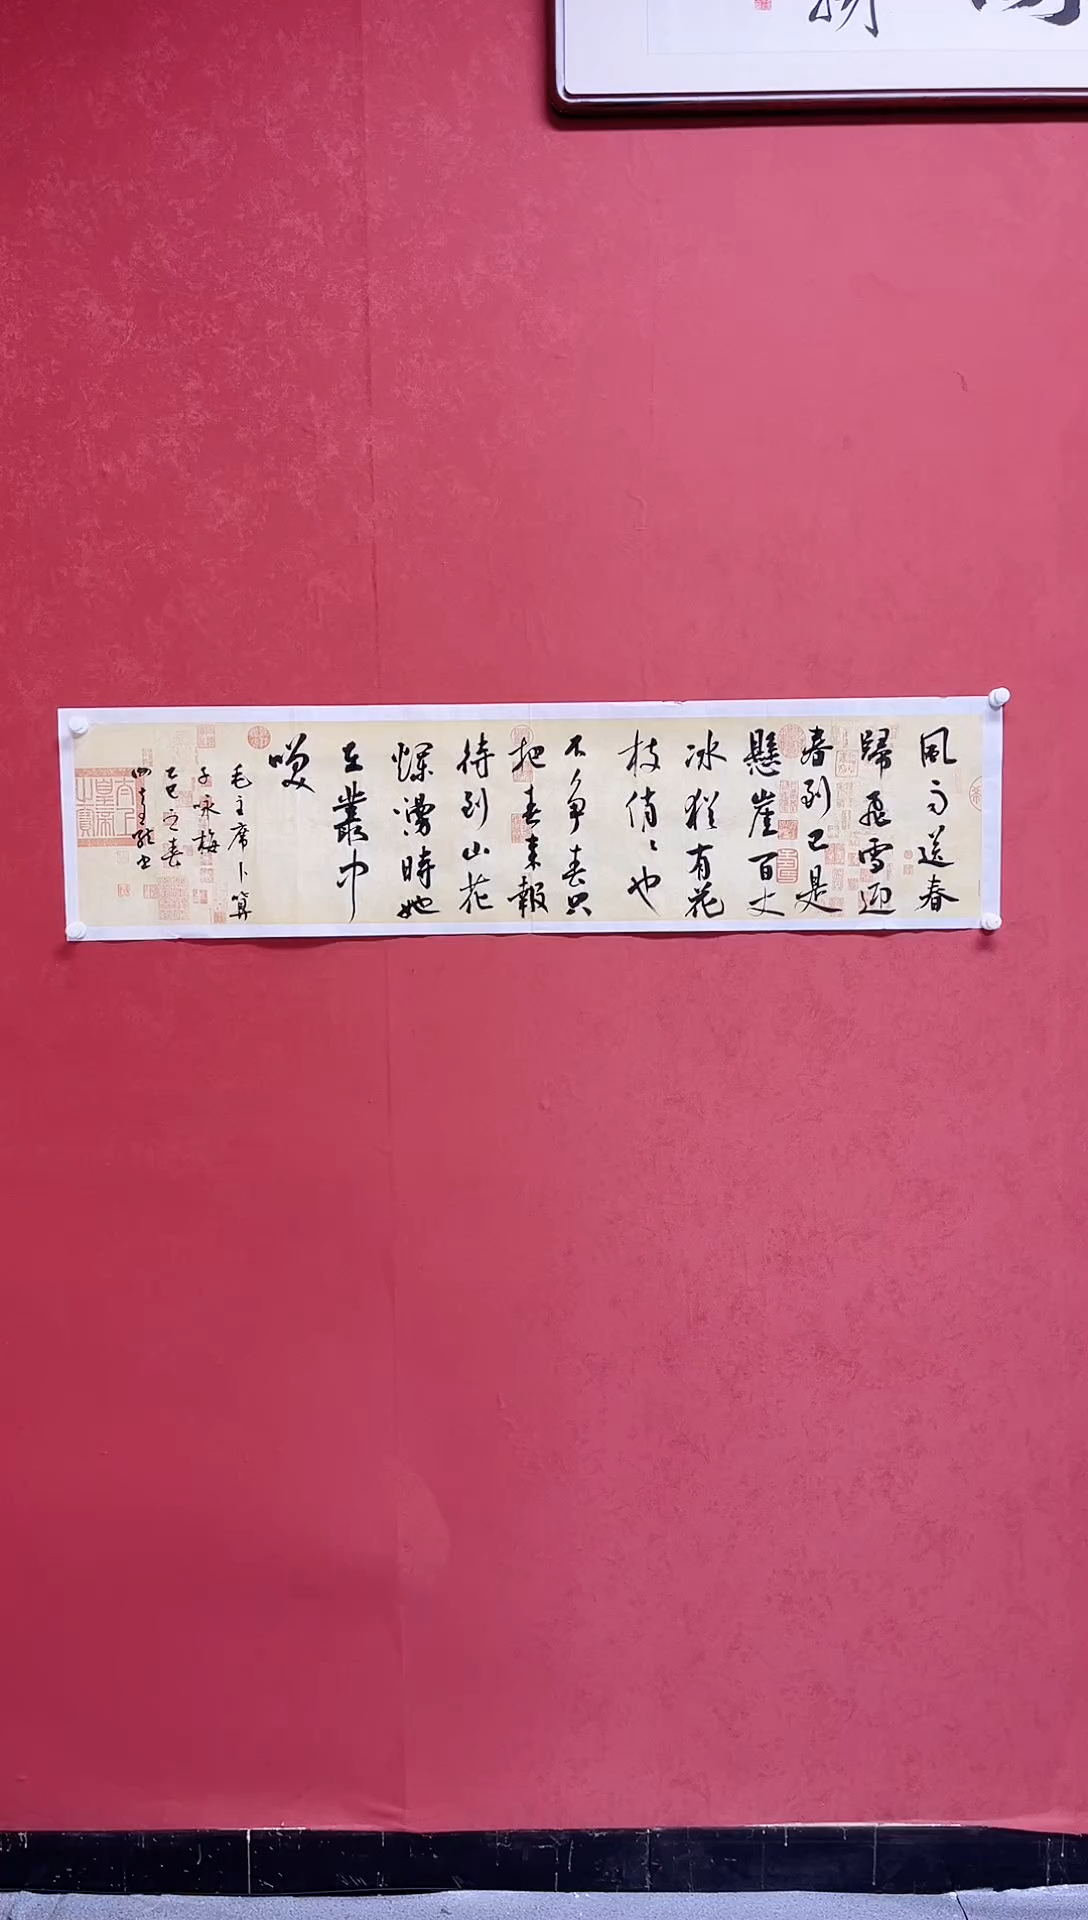 風雨送春
歸飛雪迎
春到已是
懸崖百丈
冰猶有花
枝俏〻也
不争春只
把春来報
待到山花
爛漫時她
在叢中
唉
毛主席卜算
子咏梅
乙巳之春
書